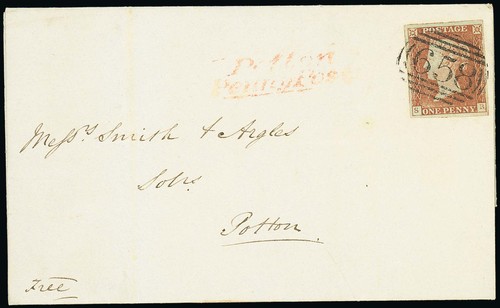 POSTAGE
658
ONE PENNY
Potton
Penny Post
Messrs. Smith & Argles
Solrs.
Potton
Free